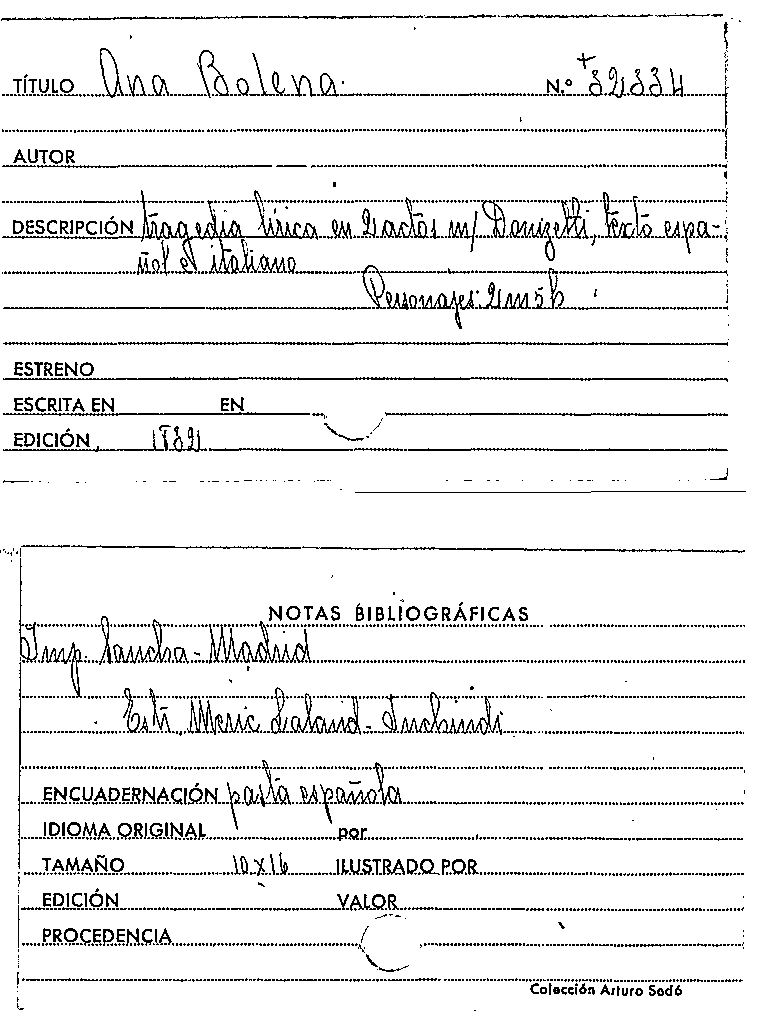 TÍTULO Ana Bolena. N.º +32334
AUTOR
DESCRIPCIÓN tragedia lírica en 2 actos m/ Donizetti, texto espa-
ñol e italiano
Personajes: 2 m 5 h
ESTRENO
ESCRITA EN EN
EDICIÓN, 1832
NOTAS BIBLIOGRÁFICAS
Imp. Sancha - Madrid
Meric Laland - Inchindi
ENCUADERNACIÓN pasta española
IDIOMA ORIGINAL por
TAMAÑO 10 x 16 ILUSTRADO POR
EDICIÓN VALOR
PROCEDENCIA
Colección Arturo Sedó